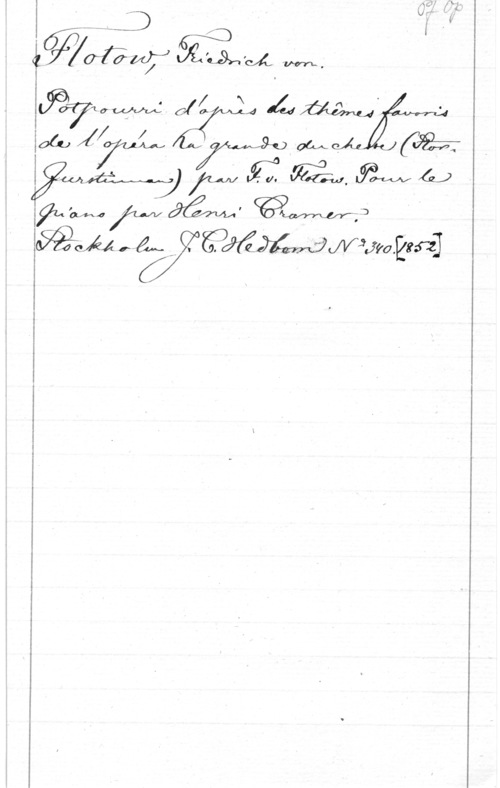 Pf Op
Flotow, Friedrich von.
Potpourri d'après des thêmes favoris
de l'opéra La grande duchesse (Gross-
furstinnan) par F. v. Flotow. Pour le
piano par Henri Cramer.
Stockholm J. C. Hedbom No 340. [1852]